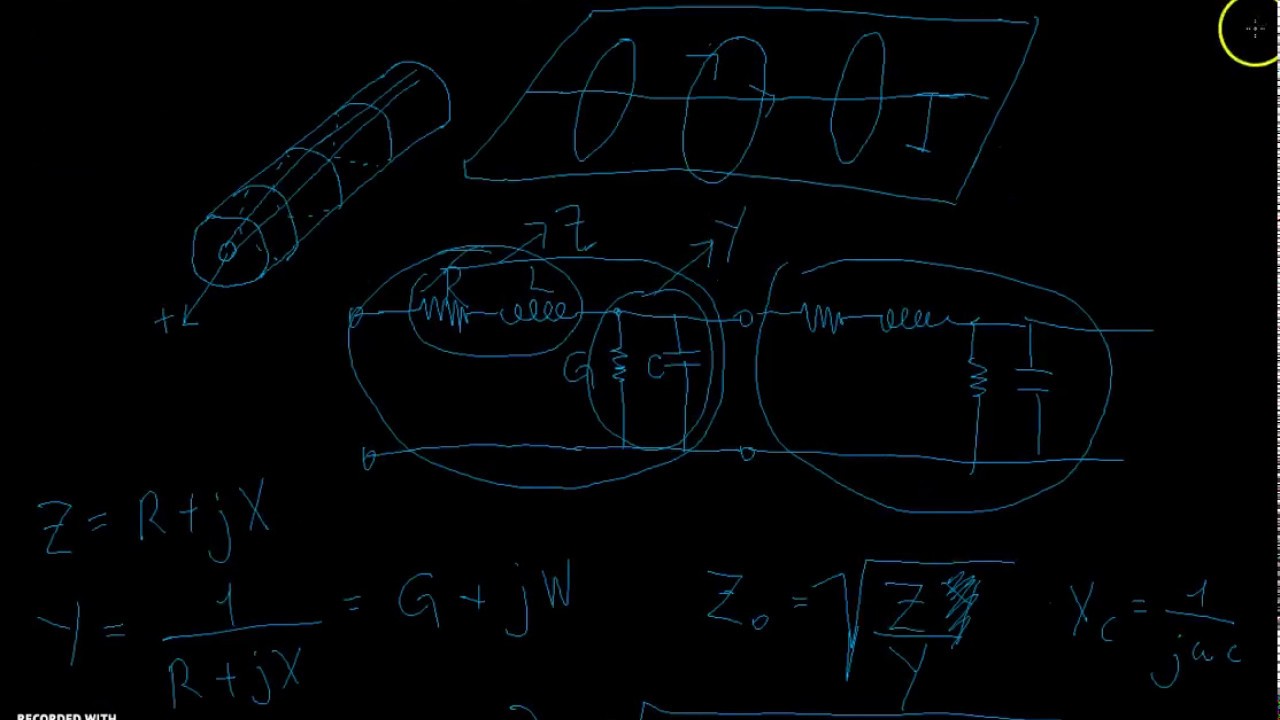 I
Z
Y
R L
G C
+
Z = R + jX
Y = 1 / R + jX = G + jW
Z₀ = √ Z / Y
X_C = 1 / jωc
RECORDED WITH